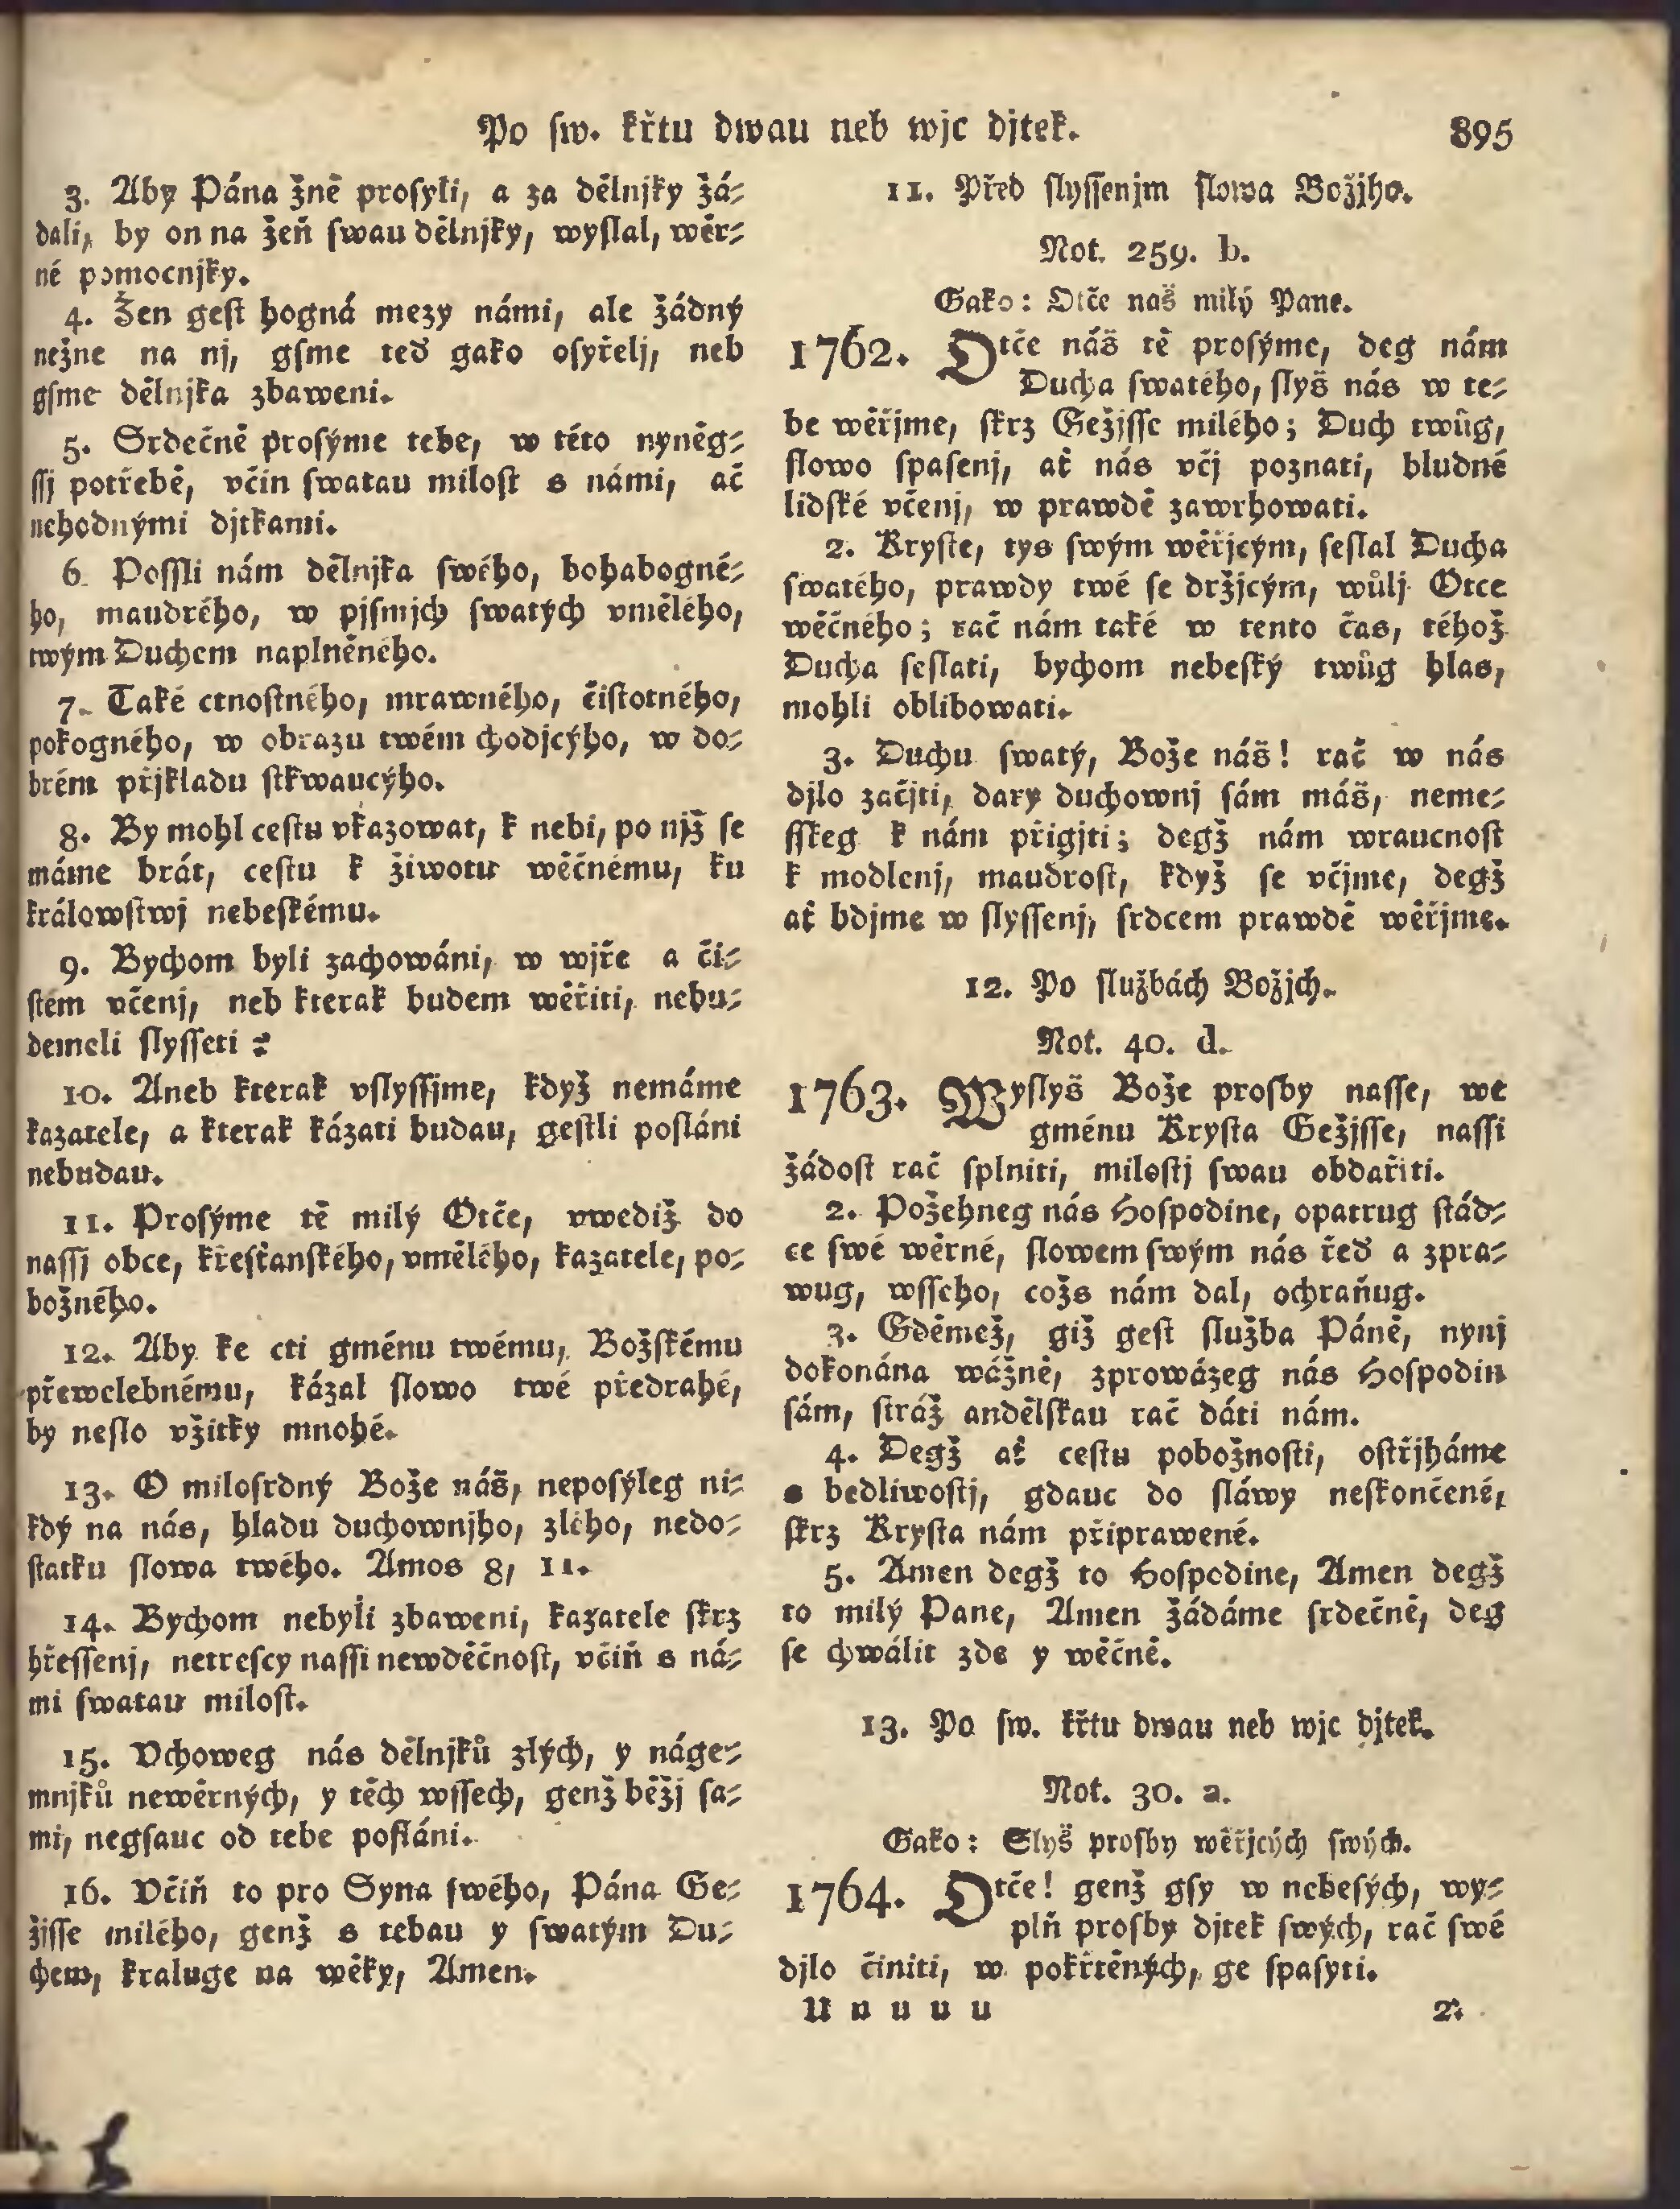 Po ſw. křtu dwau neb wjc djtek.
895
3. Aby Pána žně proſyli, a za dělnjky žá⸗
dali, by on na žeň ſwau dělnjky, wyſlal, wěr⸗
né pomocnjky.
4. Žen geſt hogná mezy námi, ale žádný
nežne na nj, gſme teď gako oſyřelj, neb
gſme dělnjka zbaweni.
5. Srdečně proſýme tebe, w této nyněg⸗
ſſj potřebě, včin ſwatau miloſt s námi, ač
nehodnými djtkami.
6. Poſſli nám dělnjka ſwého, bohabogné⸗
ho, maudrého, w pjſmjch ſwatých vmělého,
twým Duchem naplněného.
7. Také ctnoſtného, mrawného, čiſtotného,
pokogného, w obrazu twém chodjcýho, w do⸗
brém přjkladu ſtkwaucýho.
8. By mohl ceſtu vkazowat, k nebi, po njž ſe
máme brát, ceſtu k žiwotu wěčnému, ku
králowſtwj nebeſkému.
9. Bychom byli zachowáni, w wjře a či⸗
ſtém včenj, neb kterak budem wěřiti, nebu⸗
demeli ſlyſſeti?
10. Aneb kterak vſlyſſjme, když nemáme
kazatele, a kterak kázati budau, geſtli poſláni
nebudau.
11. Proſýme tě milý Otče, vwediž do
naſſj obce, křeſťanſkého, vmělého, kazatele, po⸗
božného.
12. Aby ke cti gménu twému, Božſkému
přewelebnému, kázal ſlowo twé předrahé,
by neſlo vžitky mnohé.
13. O miloſrdný Bože náš, nepoſýleg ni⸗
kdý na nás, hladu duchownjho, zlého, nedo⸗
ſtatku ſlowa twého. Amos 8, 11.
14. Bychom nebyli zbaweni, kazatele ſkrz
hřeſſenj, netreſcy naſſi newděčnoſt, včiň s ná⸗
mi ſwatau miloſt.
15. Vchoweg nás dělnjků zlých, y náge⸗
mnjků newěrných, y těch wſſech, genž běžj ſa⸗
mi, negſauc od tebe poſláni.
16. Včiň to pro Syna ſwého, Pána Ge⸗
žiſſe milého, genž s tebau y ſwatým Du⸗
chem, kraluge na wěky, Amen.
11. Před ſlyſſenjm ſlowa Božjho.
Not. 259. b.
Gako: Otče naš milý Pane.
1762. Otče náš tě proſýme, deg nám
Ducha ſwatého, ſlyš nás w te⸗
be wěřjme, ſkrz Gežjſſe milého; Duch twůg,
ſlowo ſpaſenj, ať nás včj poznati, bludné
lidſké včenj, w prawdě zawrhowati.
2. Kryſte, tys ſwým wěřjcým, ſeſlal Ducha
ſwatého, prawdy twé ſe držjcým, wůlj Otce
wěčného; rač nám také w tento čas, téhož
Ducha ſeſlati, bychom nebeſký twůg hlas,
mohli oblibowati.
3. Duchu ſwatý, Bože náš! rač w nás
djlo začjti, dary duchownj ſám máš, neme⸗
ſſkeg k nám přigjti; degž nám wraucnoſt
k modlenj, maudroſt, když ſe včjme, degž
ať bdjme w ſlyſſenj, ſrdcem prawdě wěřjme.
12. Po ſlužbách Božjch.
Not. 40. d.
1763. Wyſlyš Bože proſby naſſe, we
gménu Kryſta Gežjſſe, naſſi
žádoſt rač ſplniti, miloſtj ſwau obdařiti.
2. Požehneg nás Hoſpodine, opatrug ſtád⸗
ce ſwé wěrné, ſlowem ſwým nás řeď a zpra⸗
wug, wſſeho, cožs nám dal, ochraňug.
3. Gděmež, giž geſt ſlužba Páně, nynj
dokonána wážně, zprowázeg nás Hoſpodin
ſám, ſtráž andělſkau rač dáti nám.
4. Degž ať ceſtu pobožnoſti, oſtřjháme
s bedliwoſtj, gdauc do ſláwy neſkončené,
ſkrz Kryſta nám připrawené.
5. Amen degž to Hoſpodine, Amen degž
to milý Pane, Amen žádáme ſrdečně, deg
ſe chwálit zde y wěčně.
13. Po ſw. křtu dwau neb wjc djtek.
Not. 30. a.
Gako: Slyš proſby wěřjcých ſwých.
1764. Otče! genž gſy w nebeſých, wy⸗
plň proſby djtek ſwých, rač ſwé
djlo činiti, w pokřtěných, ge ſpaſyti.
U u u u u
2.